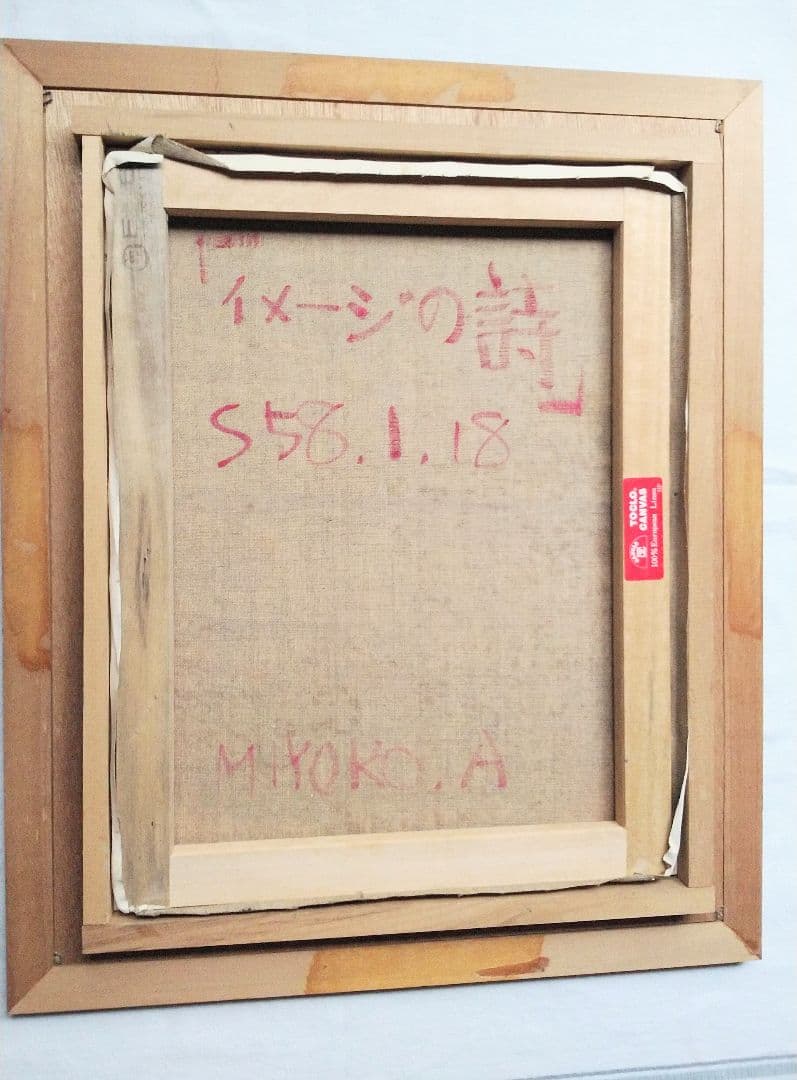 『イメージの詩』
S58.1.18
TOCLO.
CANVAS
100% European Linen
MIYOKO.A